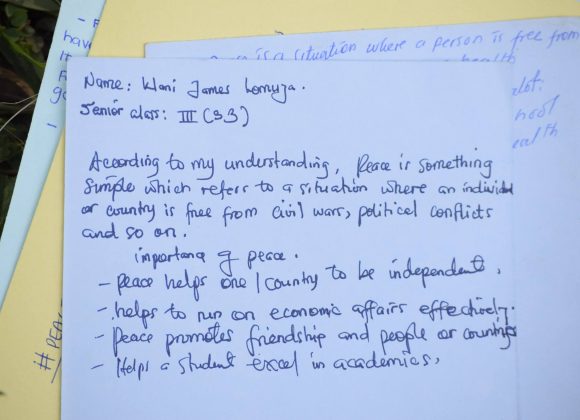 Name: Wani James Lomuja.
Senior class: III (S3)
According to my understanding, Peace is something
simple which refers to a situation where an individual
or country is free from civil wars, political conflicts
and so on.
importance of peace.
- peace helps one/country to be independent.
- helps to run on economic affairs effectively.
- Peace promotes friendship and people or countries
- Helps a student excel in academics.
is a situation where a person is free from
health
hav
#PEA